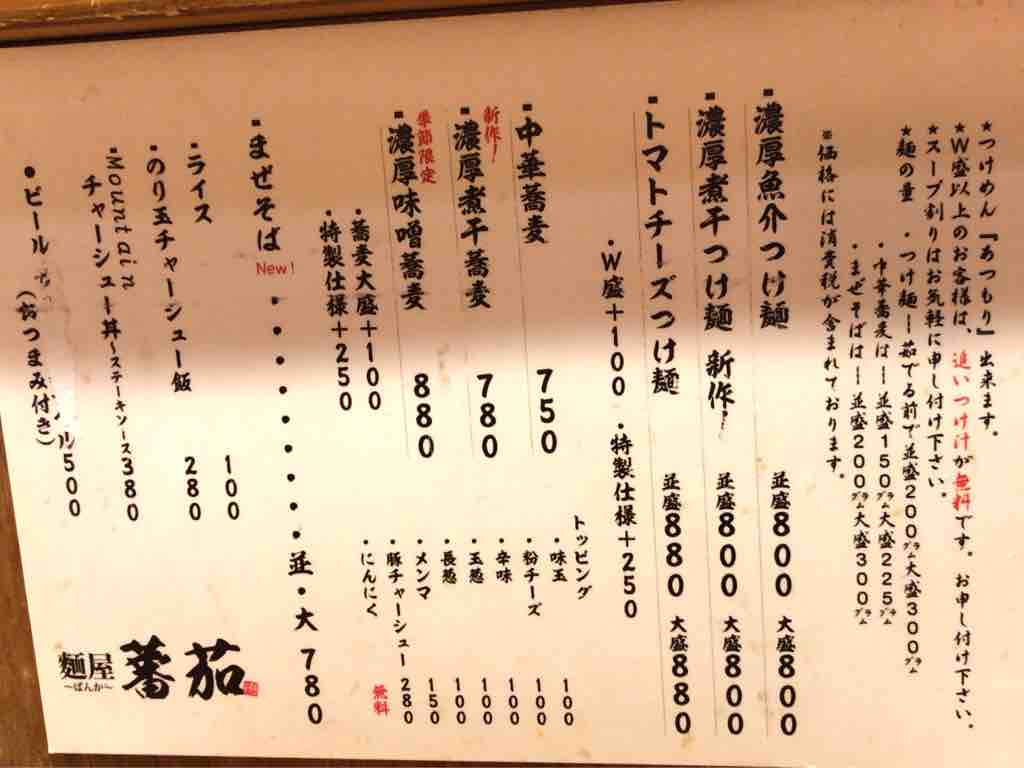 ★つけめん『あつもり』出来ます。
★W盛以上のお客様は、追いつけ汁が無料です。お申し付け下さい。
★スープ割りはお気軽に申し付け下さい。
★麺の量 ・つけ麺ー茹でる前で並盛200グラム大盛300グラム
・中華蕎麦はー並盛150グラム大盛225グラム
・まぜそばはー並盛200グラム大盛300グラム
※価格には消費税が含まれております。
・濃厚魚介つけ麺 並盛800 大盛800
・濃厚煮干つけ麺 新作! 並盛800 大盛800
・トマトチーズつけ麺 並盛880 大盛880
・W盛+100 ・特製仕様+250
・中華蕎麦 750
新作!
・濃厚煮干蕎麦 780
季節限定
・濃厚味噌蕎麦 880
・蕎麦大盛+100
・特製仕様+250
・まぜそば New! ・・・・・・・・並・大 780
トッピング
・味玉 100
・粉チーズ 100
・辛味 100
・玉葱 100
・長葱 100
・メンマ 150
・豚チャーシュー 280
・にんにく 無料
・ライス 100
・のり玉チャーシュー飯 280
・Mountain
チャーシュー丼〜ステーキソース380
・ビール 500
(おつまみ付き)
麺屋 蕃茄
〜ばんか〜